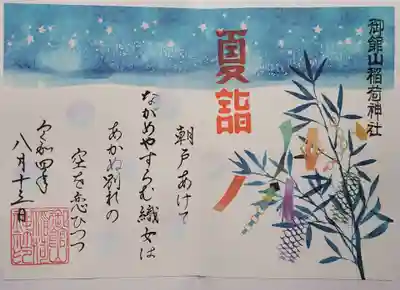 御館山稲荷神社
夏詣
朝戸あけて
ながめやすらむ織女は
あかぬ別れの
空を恋ひつつ
令和四年
八月十三日